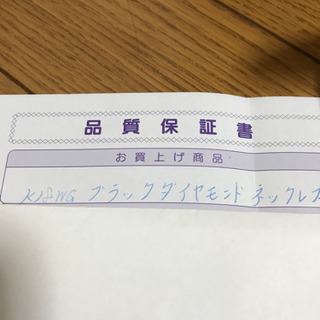 品質保証書
お買上げ商品
K18WG ブラックダイヤモンド ネックレス